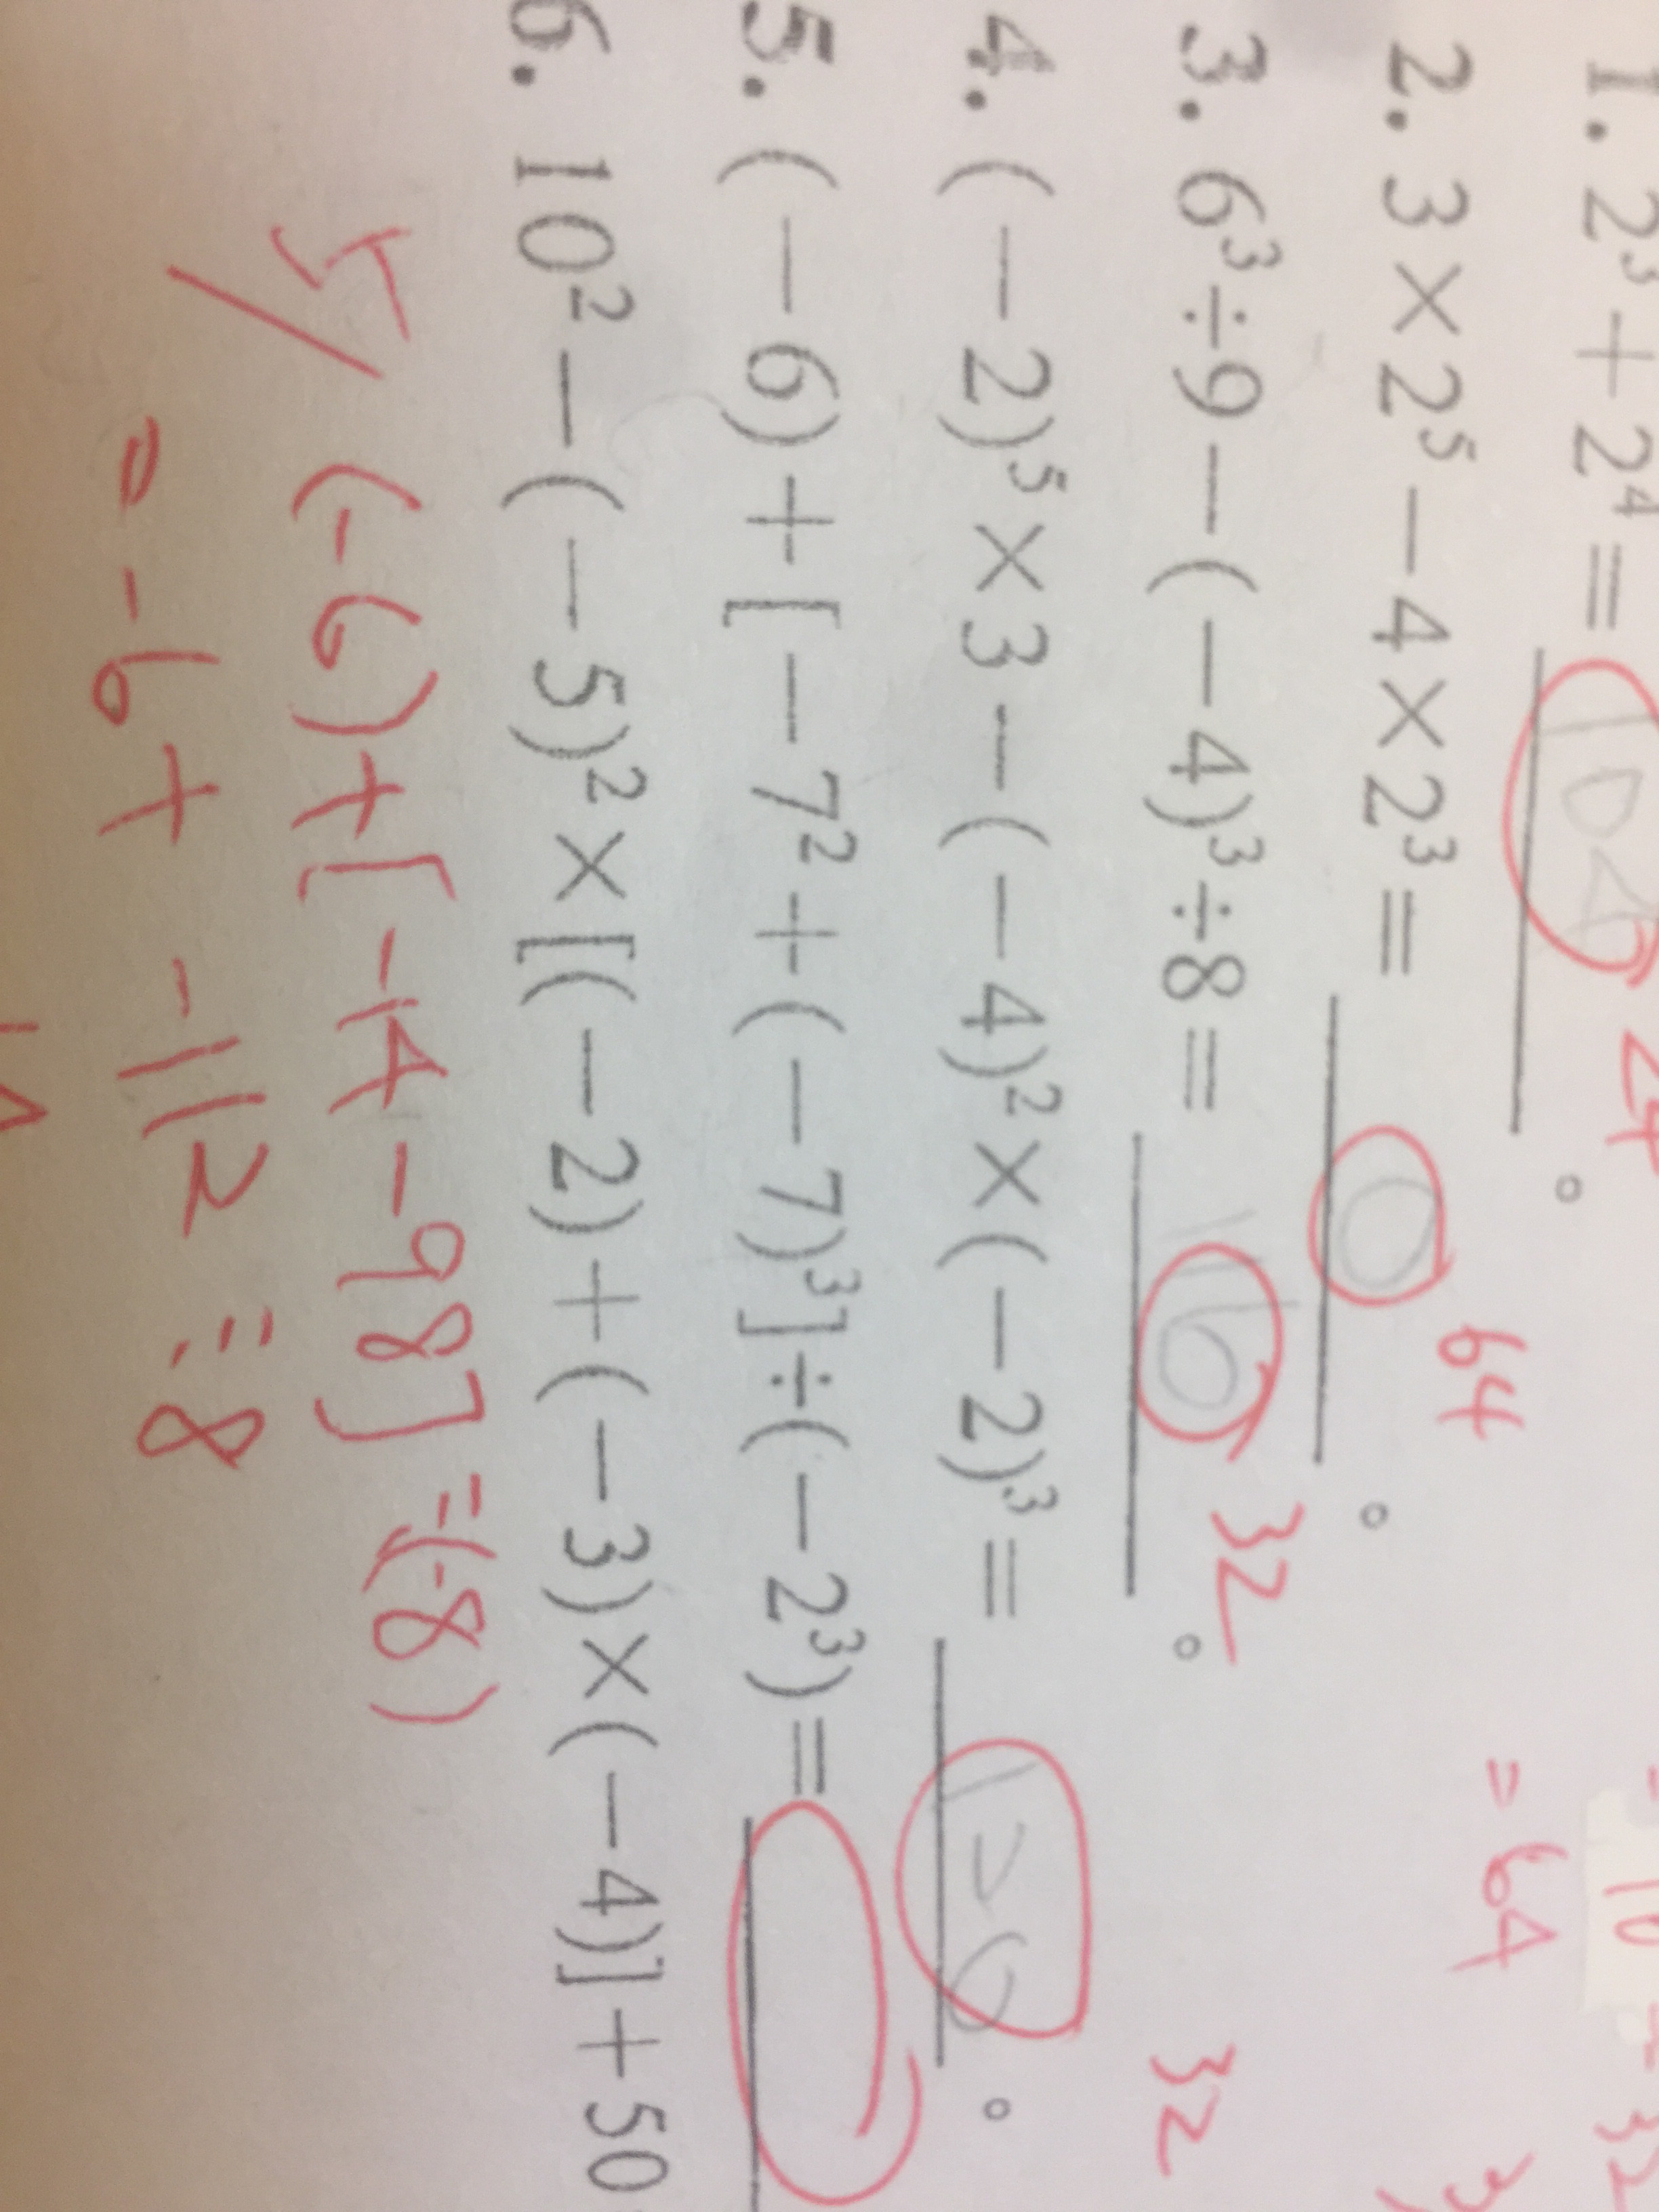 1. 2³+2⁴= 24
2. 3×2⁵-4×2³= 0 。 64
= 64
3. 6³÷9-(-4)³÷8= 16 。 32
4. (-2)⁵×3-(-4)²×(-2)³= 。 32
5. (-6)+[-7²+(-7)³]÷(-2³)=
6. 10²-(-5)²×[(-2)+(-3)×(-4)]+50
5/ (-6)+[-14-98]=(-8)
= -6+ -112 ÷8